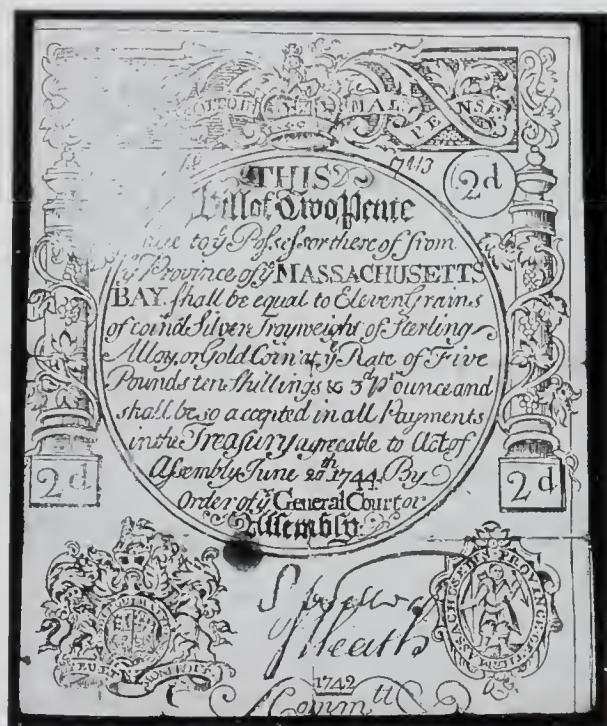 HONI SOIT QUI MAL Y PENSE
1743
2d
THIS
Bill of Two Pence
due to yͤ Possessor thereof from
yͤ Province of yͤ MASSACHUSETTS
BAY shall be equal to Eleven Grains
of coin'd Silver Troyweight of Sterling
Alloy, or Gold Coin at yͤ Rate of Five
Pounds ten Shillings & 3ᵈ Pʳ ounce and
shall be so accepted in all Payments
in the Treasury agreeable to Act of
Assembly June 20ᵗʰ 1744. By
Order of yͤ General Court or
Assembly.
2d
2d
Heath
1742
Commᵗᵗ